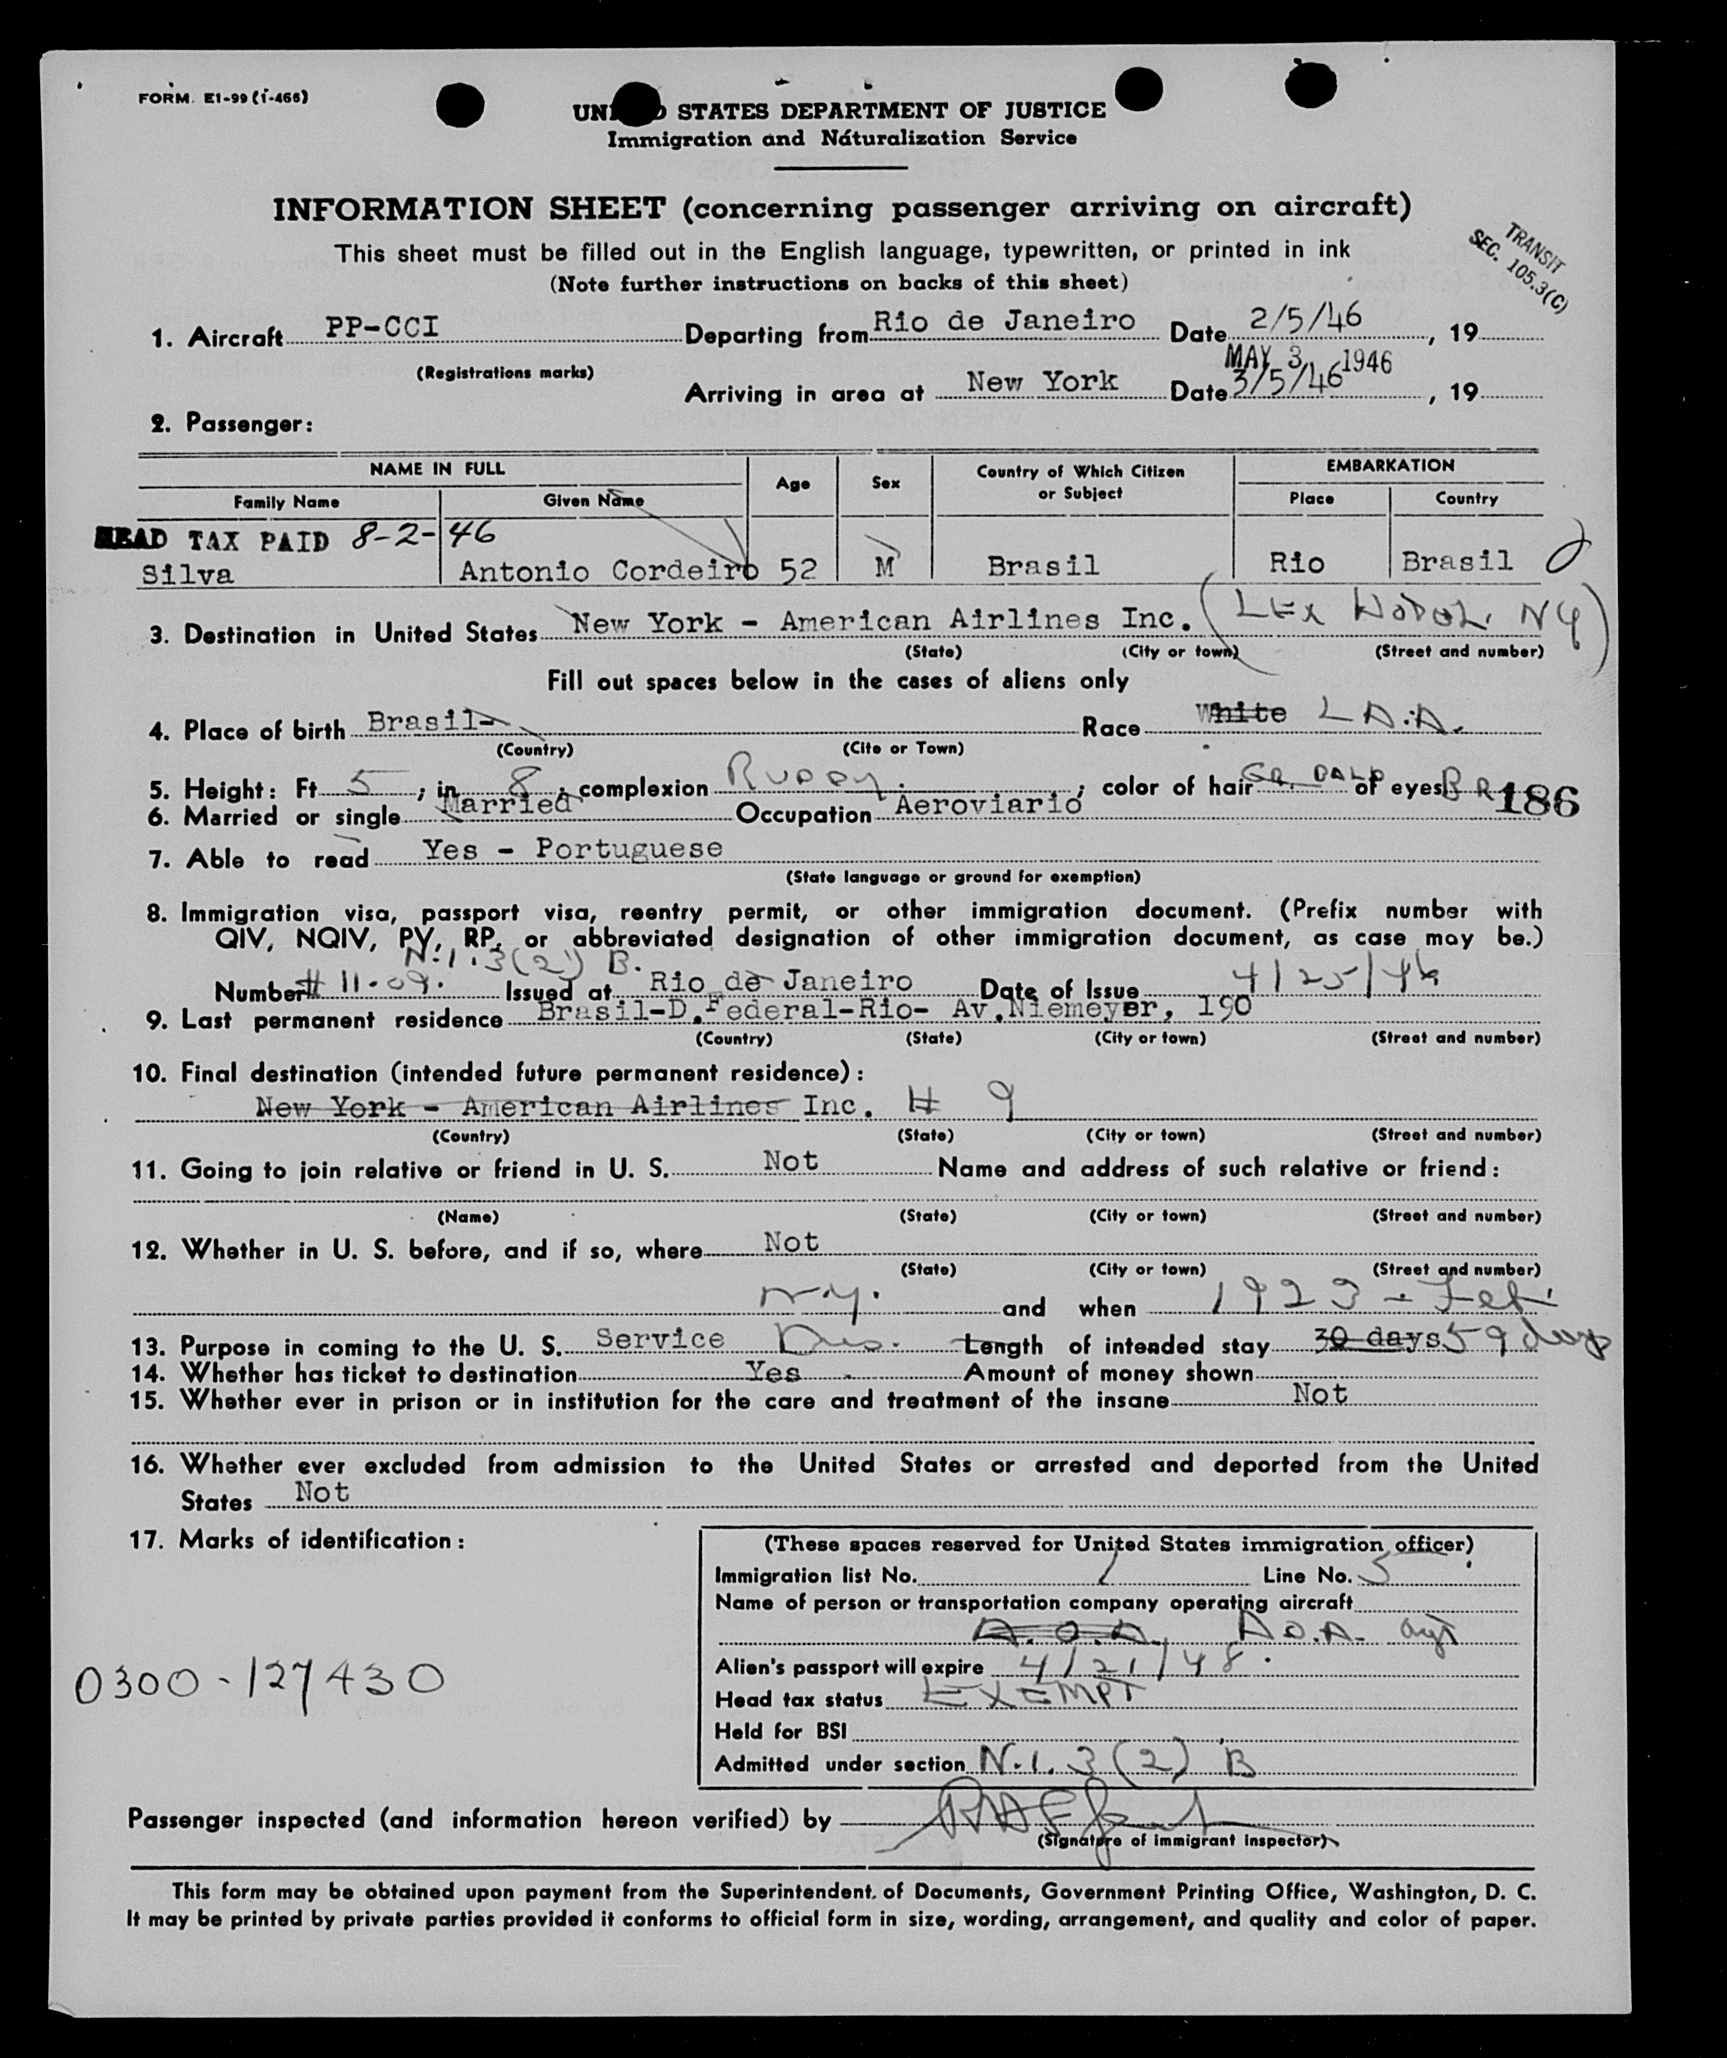 FORM. E1-99 (1-466)
UNITED STATES DEPARTMENT OF JUSTICE
Immigration and Naturalization Service
INFORMATION SHEET (concerning passenger arriving on aircraft)
This sheet must be filled out in the English language, typewritten, or printed in ink
(Note further instructions on backs of this sheet)
TRANSIT
SEC. 105.3(C)
1. Aircraft PP-CCI Departing from Rio de Janeiro Date 2/5/46, 19
(Registrations marks) MAY 3 1946
Arriving in area at New York Date 3/5/46, 19
2. Passenger:
NAME IN FULL Age Sex Country of Which Citizen or Subject EMBARKATION
Family Name Given Name Place Country
HEAD TAX PAID 8-2-46
Silva Antonio Cordeiro 52 M Brasil Rio Brasil
3. Destination in United States New York - American Airlines Inc. (LEX HOTEL. NY)
(State) (City or town) (Street and number)
Fill out spaces below in the cases of aliens only
4. Place of birth Brasil- Race White L A.A.
(Country) (Cite or Town)
5. Height: Ft 5; in 8; complexion RUDDY; color of hair GR. BALD of eyes BR
186
6. Married or single Married Occupation Aeroviario
7. Able to read Yes - Portuguese
(State language or ground for exemption)
8. Immigration visa, passport visa, reentry permit, or other immigration document. (Prefix number with
QIV, NQIV, PV, RP, or abbreviated designation of other immigration document, as case may be.)
N.1.3(2) B.
Number # 11.09. Issued at Rio de Janeiro Date of Issue 4/25/46
9. Last permanent residence Brasil-D.Federal-Rio- Av.Niemeyer, 190
(Country) (State) (City or town) (Street and number)
10. Final destination (intended future permanent residence):
New York - American Airlines Inc. # 9
(Country) (State) (City or town) (Street and number)
11. Going to join relative or friend in U. S. Not Name and address of such relative or friend:
(Name) (State) (City or town) (Street and number)
12. Whether in U. S. before, and if so, where Not
(State) (City or town) (Street and number)
N.Y. and when 1923 - Feb.
13. Purpose in coming to the U. S. Service Bus. Length of intended stay 30 days 59 days
14. Whether has ticket to destination Yes Amount of money shown
15. Whether ever in prison or in institution for the care and treatment of the insane Not
16. Whether ever excluded from admission to the United States or arrested and deported from the United
States Not
17. Marks of identification:
(These spaces reserved for United States immigration officer)
Immigration list No. 1 Line No. 5
Name of person or transportation company operating aircraft
A.O.A. A.O.A. agt
Alien's passport will expire 4/21/48.
0300-127430
Head tax status EXEMPT
Held for BSI
Admitted under section N.1.3(2) B
Passenger inspected (and information hereon verified) by
(Signature of immigrant inspector)
This form may be obtained upon payment from the Superintendent of Documents, Government Printing Office, Washington, D. C.
It may be printed by private parties provided it conforms to official form in size, wording, arrangement, and quality and color of paper.